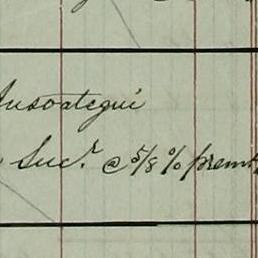 Ausoategui
Suc.r @ 5/8 % prem